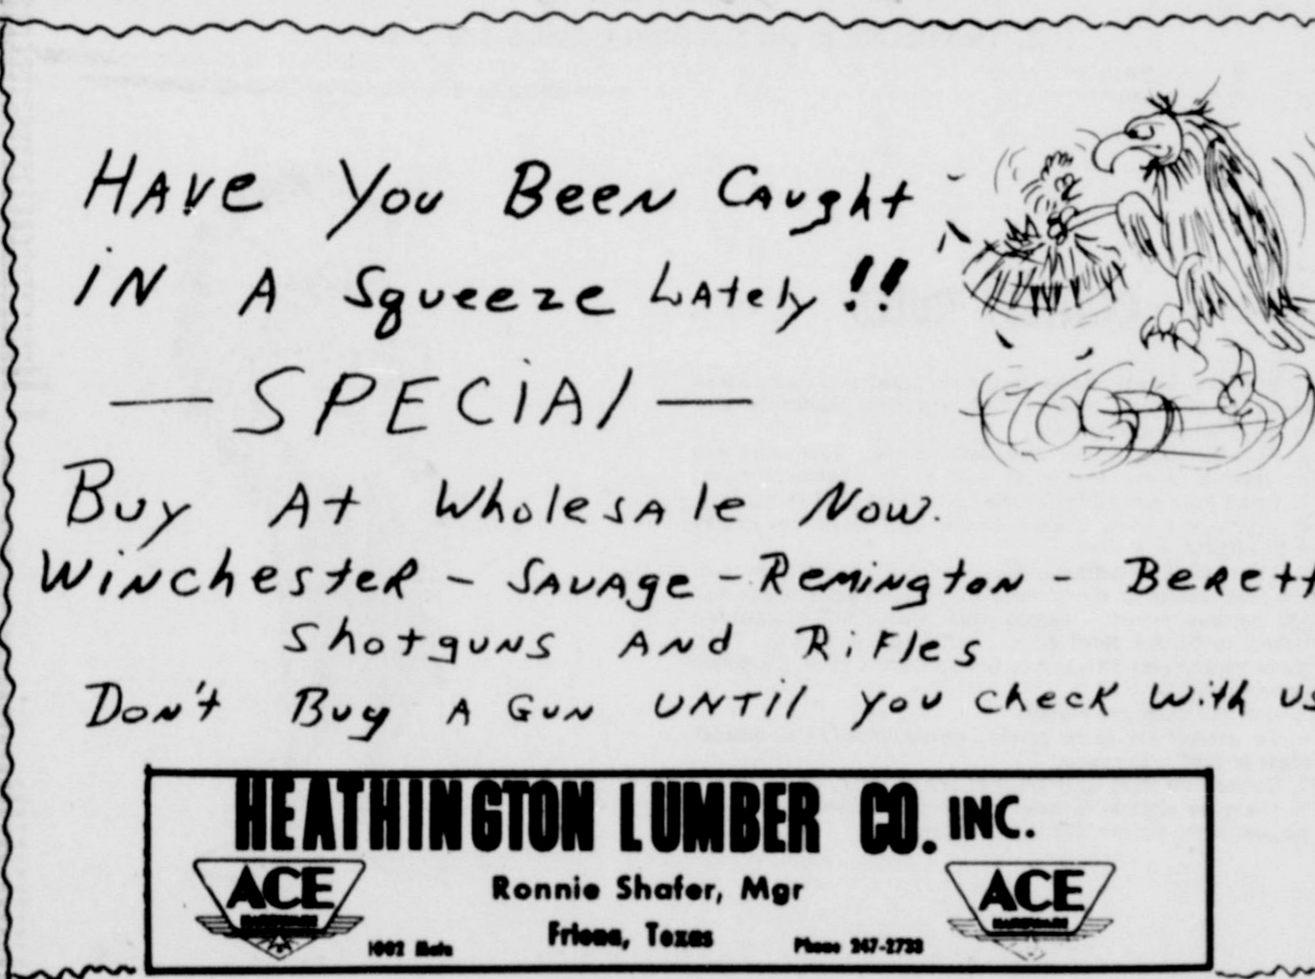 HAVe You BeeN CAught
iN A Squeeze LAtely !!
— SPECiAl —
Buy At WholesAle Now.
WiNchesteR - SAVAge - RemiNgtoN - BeRett
ShotguNS ANd RiFles
DoN't Buy A GuN UNTil you checK With US
HEATHINGTON LUMBER CO. INC.
ACE HARDWARE
Ronnie Shafer, Mgr
ACE HARDWARE
1002 Main
Friona, Texas
Phone 247-2733